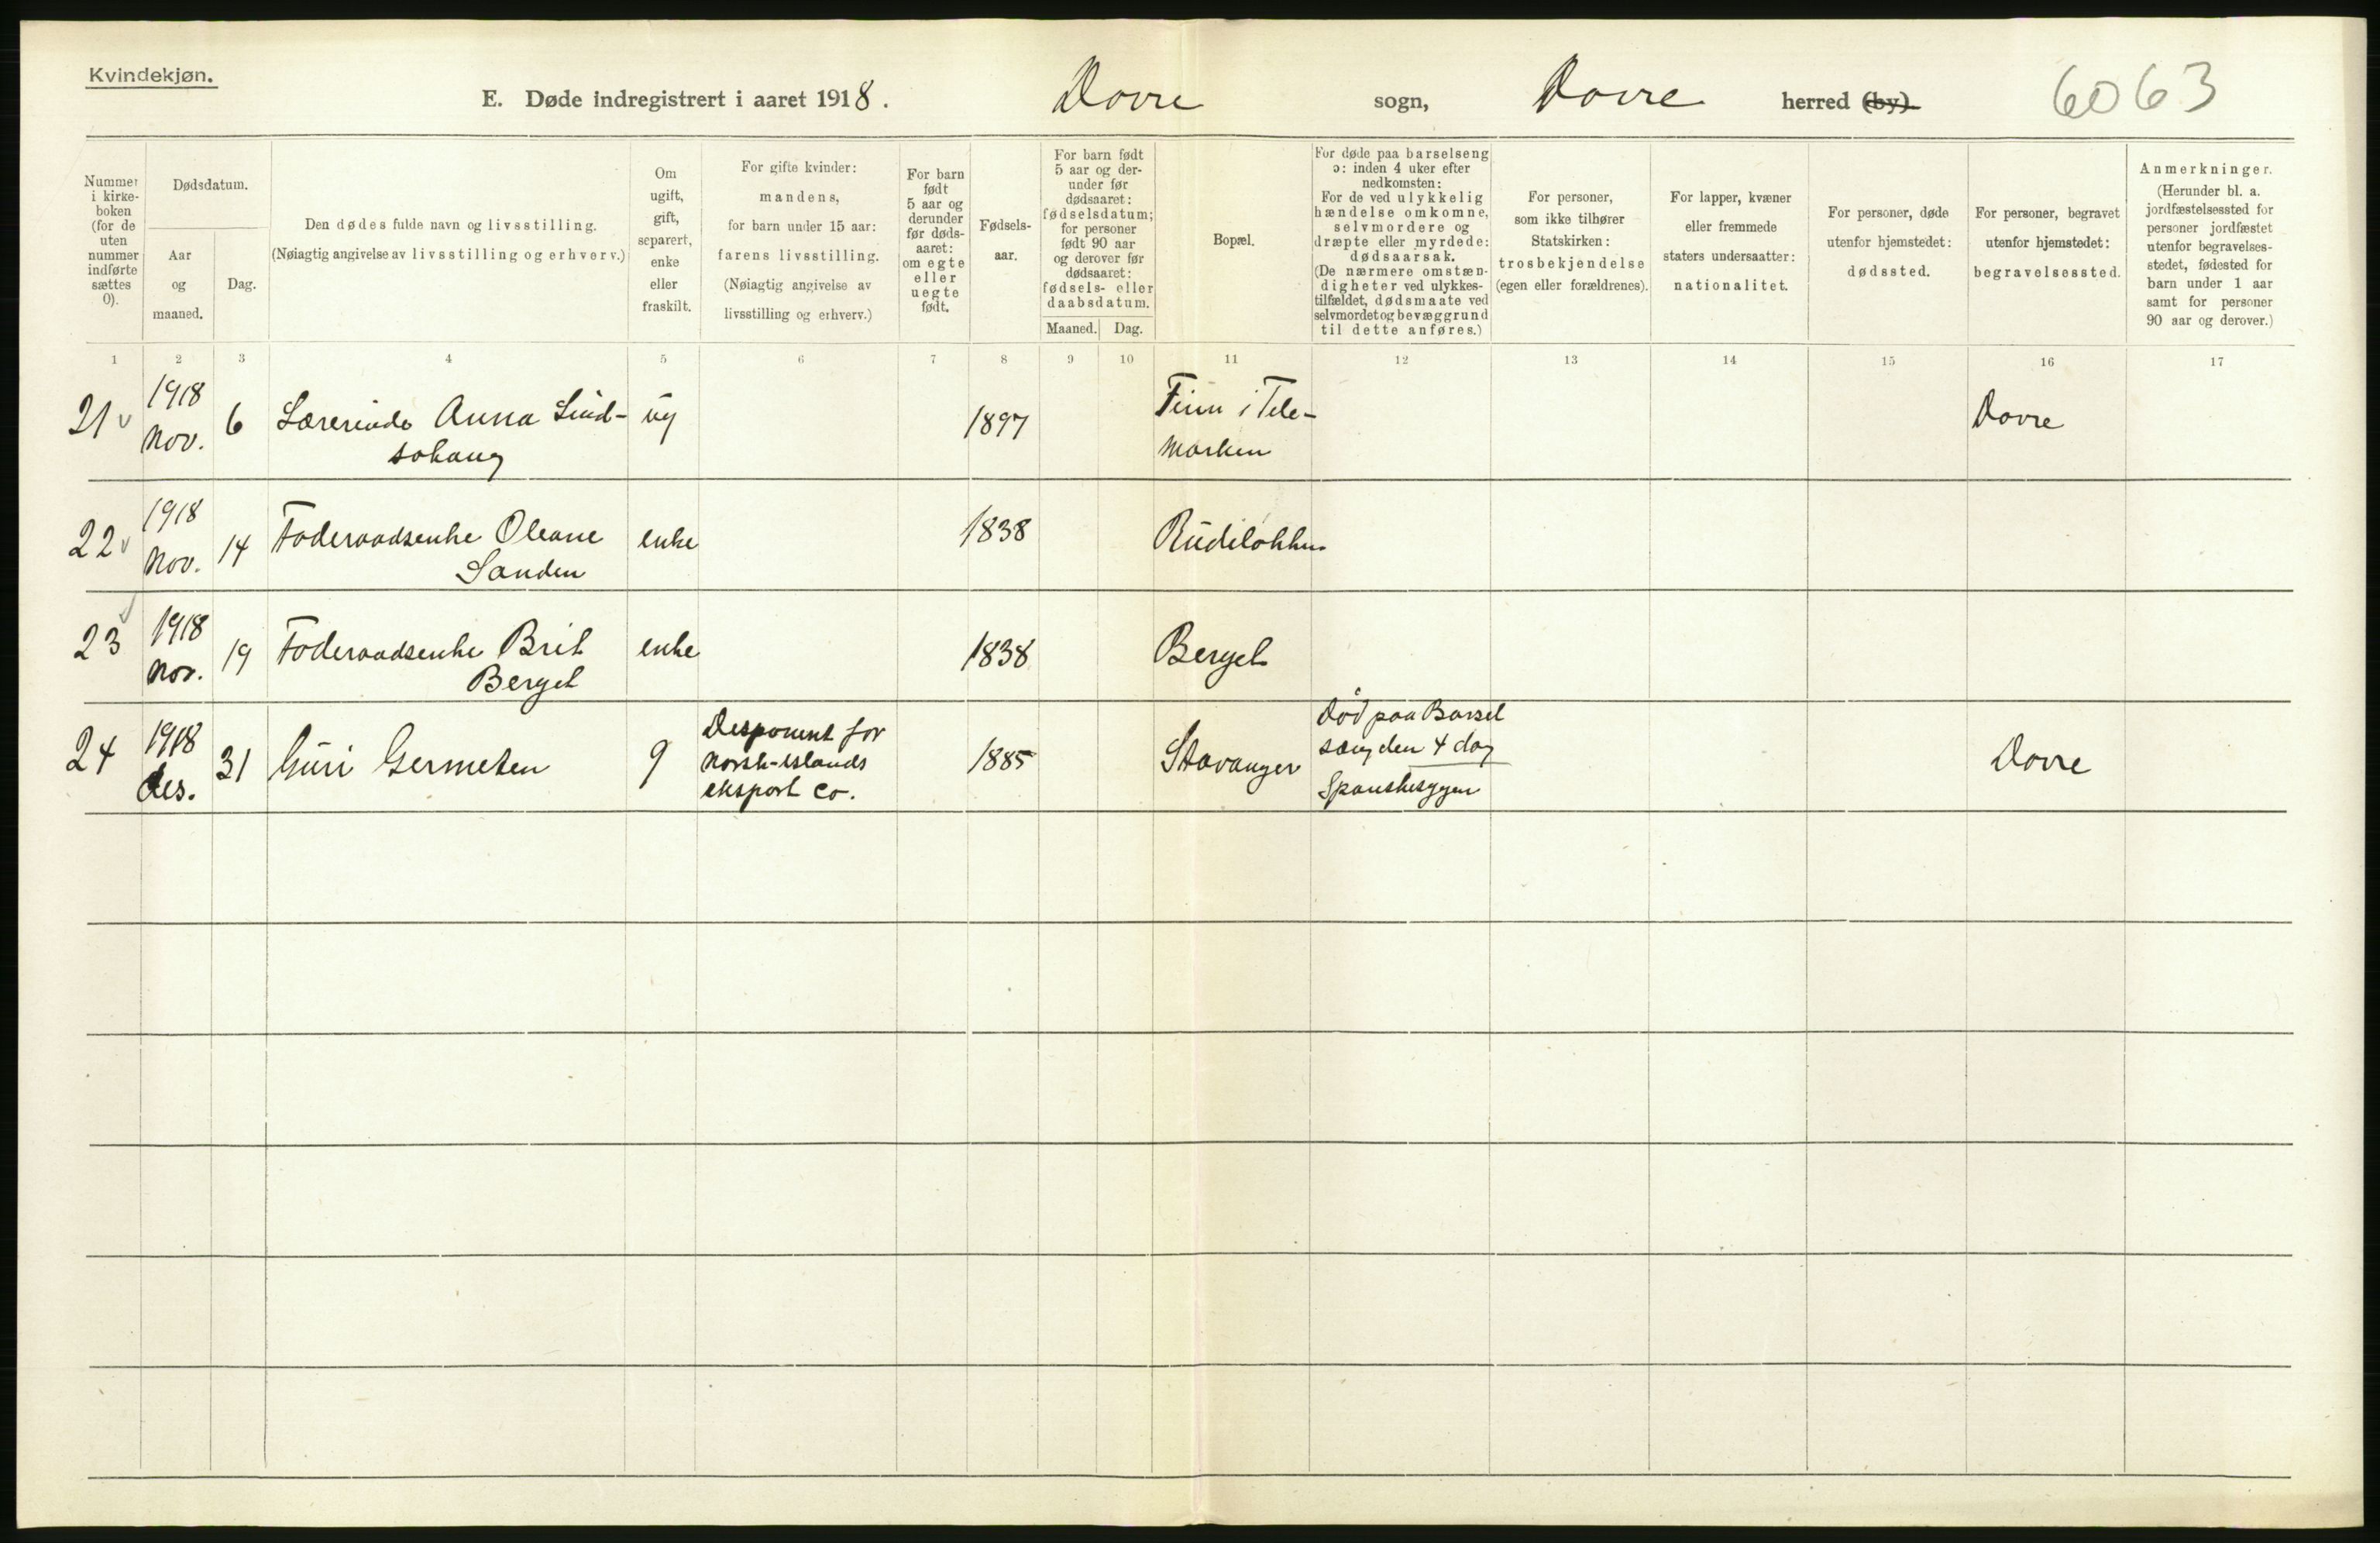 Kvindekjøn.
E. Døde indregistrert i aaret 1918. Dovre sogn, Dovre herred (by) 6063
Nummer i kirkeboken (for de uten nummer indførte sættes 0).
Dødsdatum.
Aar og maaned.
Dag.
Den dødes fulde navn og livsstilling.
(Nøiagtig angivelse av livsstilling og erhverv.)
Om ugift, gift, separert, enke eller fraskilt.
For gifte kvinder: mandens, for barn under 15 aar: farens livsstilling.
(Nøiagtig angivelse av livsstilling og erhverv.)
For barn født 5 aar og derunder før dødsaaret: om egte eller uegte født.
Fødselsaar.
For barn født 5 aar og derunder før dødsaaret: fødselsdatum; for personer født 90 aar og derover før dødsaaret: fødsels- eller daabsdatum.
Maaned. Dag.
Bopæl.
For døde paa barselseng ɔ: inden 4 uker efter nedkomsten:
For de ved ulykkelig hændelse omkomne, selvmordere og dræpte eller myrdede: dødsaarsak.
(De nærmere omstændigheter ved ulykkestilfældet, dødsmaate ved selvmordet og bevæggrund til dette anføres.)
For personer, som ikke tilhører Statskirken: trosbekjendelse (egen eller forældrenes).
For lapper, kvæner eller fremmede staters undersaatter: nationalitet.
For personer, døde utenfor hjemstedet: dødssted.
For personer, begravet utenfor hjemstedet: begravelsessted.
Anmerkninger.
(Herunder bl. a. jordfæstelsessted for personer jordfæstet utenfor begravelsesstedet, fødested for barn under 1 aar samt for personer 90 aar og derover.)
1 2 3 4 5 6 7 8 9 10 11 12 13 14 15 16 17
21 1918 nov. 6 Lærerinde Anna Lindsøhaug ug 1897 i Telemarken Dovre
22 1918 nov. 14 Føderaadsenke Oleane Sanden enke 1838
23 1918 nov. 19 Føderaadsenke Brit Berget enke 1838 Berget
24 1918 des. 31 Guri Germeten g Desponent for norsk-islands eksport co. 1885 Stavanger Død paa Barsel sæng den 4 dag Spanskesygen Dovre